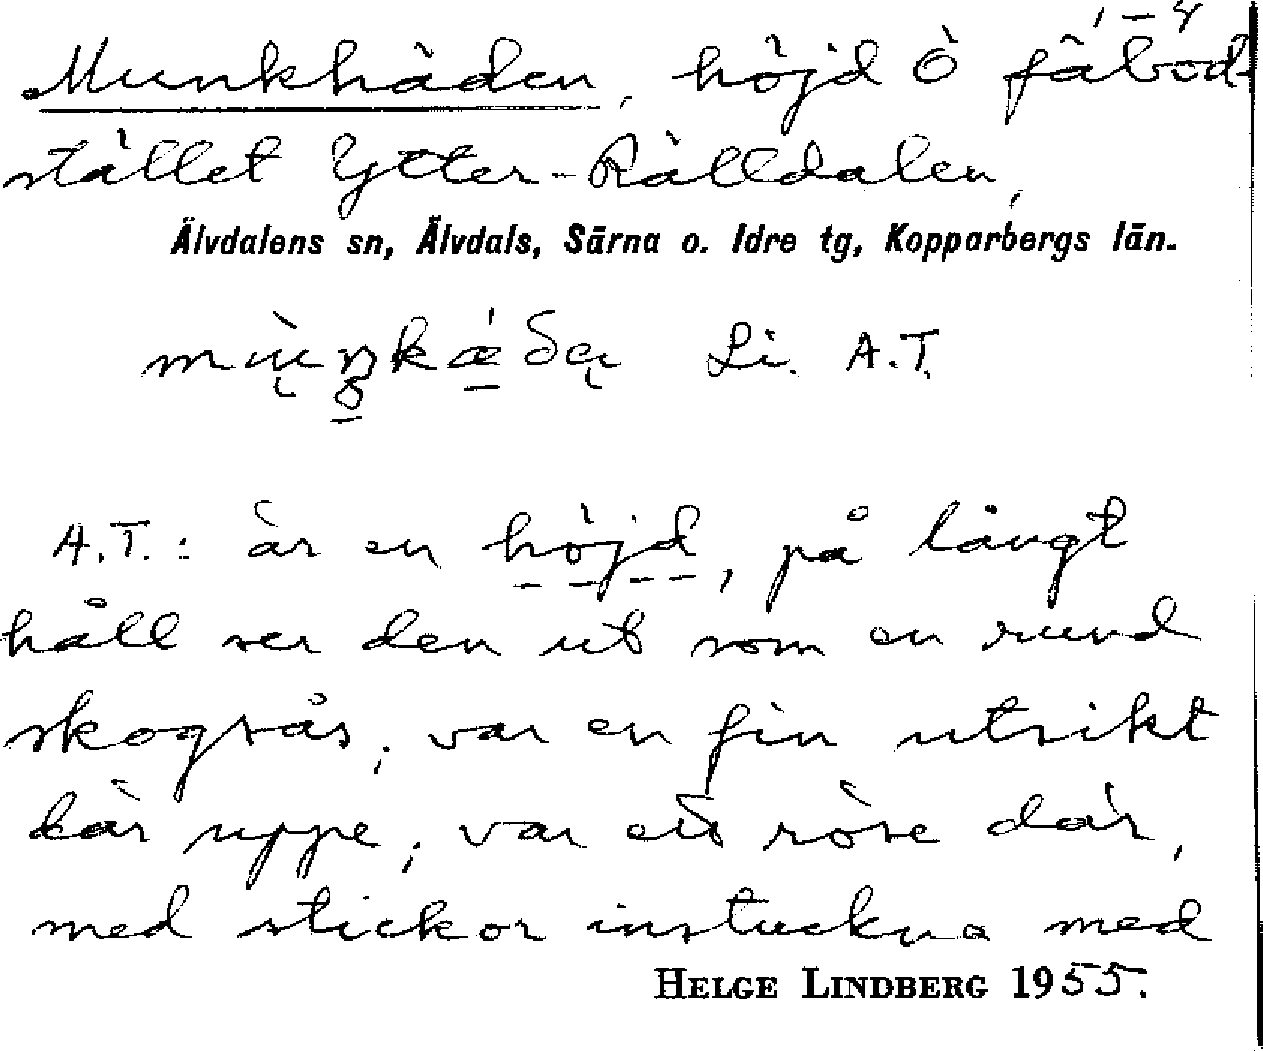 1-4
Munkhäden, höjd Ö fäbod-
stället Ytter-Rälldalen,
Älvdalens sn, Älvdals, Särna o. Idre tg, Kopparbergs län.
Li. A.T.
A.T.: är en höjd, på långt
håll ser den ut som en rund
skogsås; var en fin utsikt
där uppe; var ett röse där,
med stickor instuckna med
HELGE LINDBERG 1955.